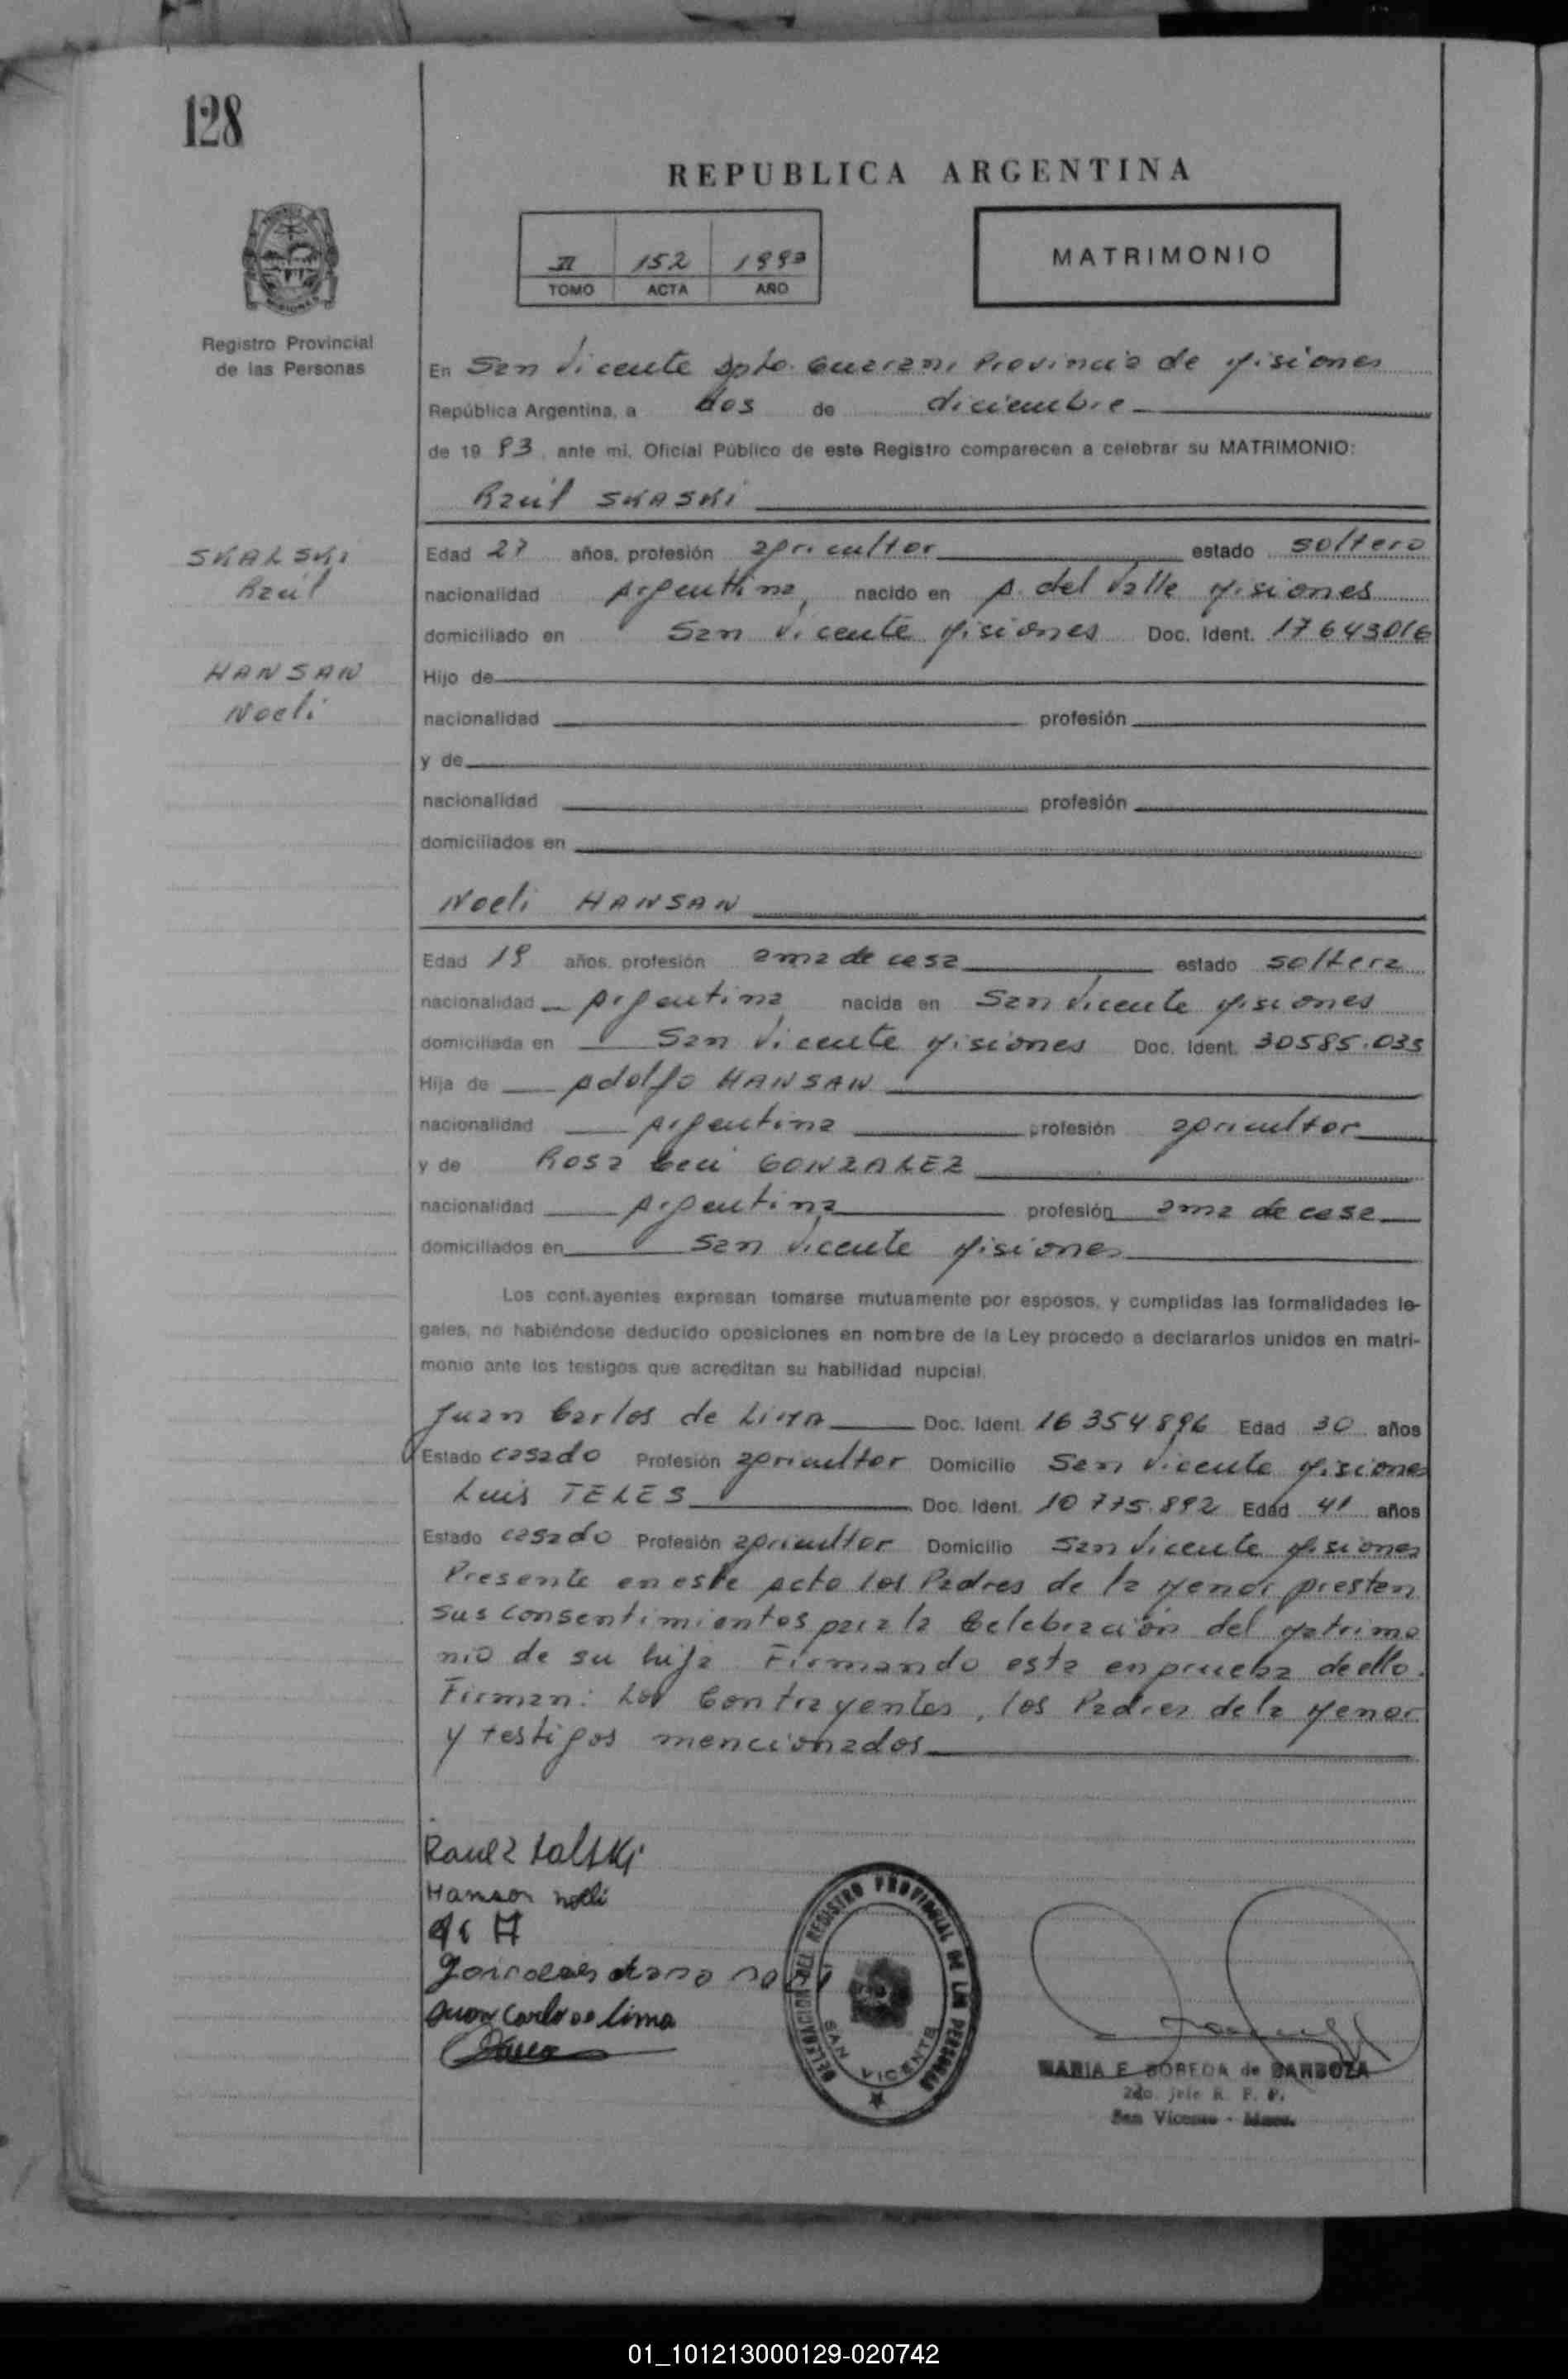 128
REPUBLICA ARGENTINA
II 152 1993
TOMO ACTA AÑO
MATRIMONIO
Registro Provincial
de las Personas
En San Vicente Dpto. Guarani Provincia de Misiones
República Argentina, a dos de diciembre
de 19 93, ante mi, Oficial Público de este Registro comparecen a celebrar su MATRIMONIO:
Raúl SKASKI
SKALSKI
Raúl
HANSAN
Noeli
Edad 27 años, profesión agricultor estado soltero
nacionalidad Argentina, nacido en A. del Valle Misiones
domiciliado en San Vicente Misiones Doc. Ident. 17643016
Hijo de
nacionalidad profesión
y de
nacionalidad profesión
domiciliados en
Noeli HANSAN
Edad 19 años, profesión ama de casa estado soltera
nacionalidad Argentina nacida en San Vicente Misiones
domiciliada en San Vicente Misiones Doc. Ident. 30585.035
Hija de Adolfo HANSAN
nacionalidad Argentina profesión agricultor
y de Rosa GONZALEZ
nacionalidad Argentina profesión ama de casa
domiciliados en San Vicente Misiones
Los contrayentes expresan tomarse mutuamente por esposos, y cumplidas las formalidades le-
gales, no habiéndose deducido oposiciones en nombre de la Ley procedo a declararlos unidos en matri-
monio ante los testigos que acreditan su habilidad nupcial.
Juan Carlos de LIMA Doc. Ident. 16 354.896 Edad 30 años
Estado casado Profesión agricultor Domicilio San Vicente Misiones
Luis TELES Doc. Ident. 10 775.892 Edad 41 años
Estado casado Profesión agricultor Domicilio San Vicente Misiones
Presente en este Acto los Padres de la Menor prestan
sus consentimientos para la Celebración del Matrimo
nio de su hija Firmando esta en prueba de ello.
Firman: Los Contrayentes, los Padres de la Menor
y testigos mencionados
Raul Skalski
Hansan Noeli
A H
Juan Carlos de Lima
DELEGACION DEL REGISTRO PROVINCIAL DE LAS PERSONAS
SAN VICENTE
MARIA E. BOREDA de BARBOZA
2do. Jefe R. P. P.
San Vicente - Mnes.
01_101213000129-020742